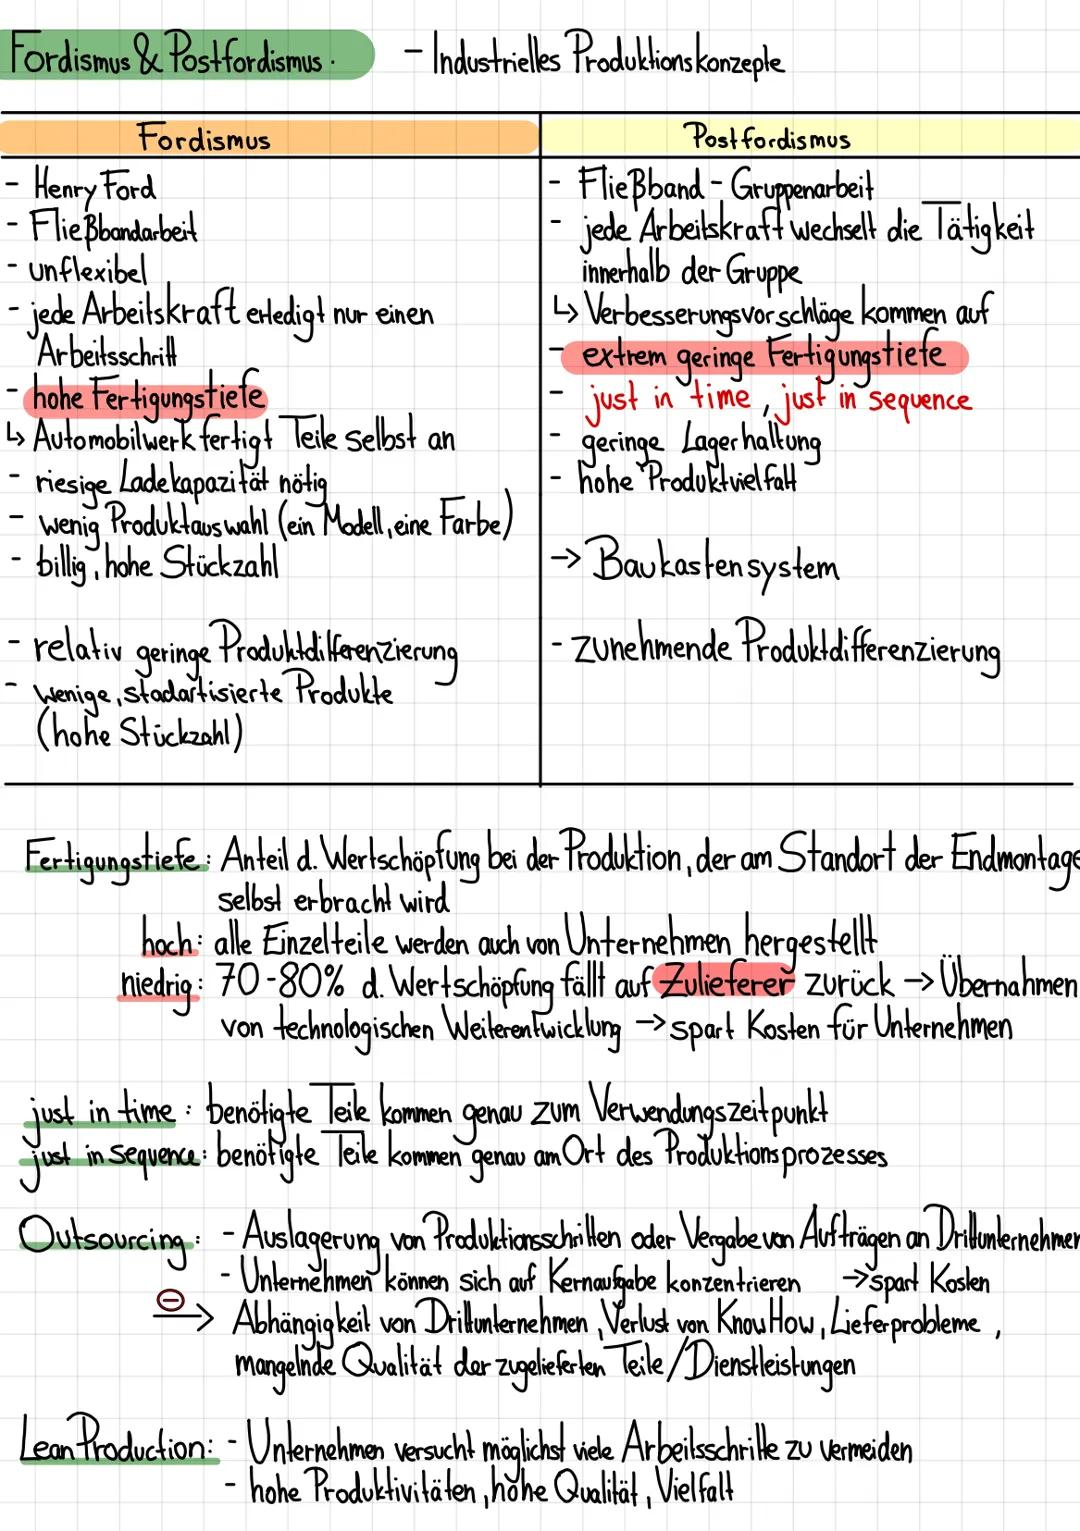 Fordismus & Postfordismus. - Industrielles Produktionskonzepte
Fordismus
- Henry Ford
- Fließbandarbeit
- unflexibel
- jede Arbeitskraft erledigt nur einen
Arbeitsschritt
- hohe Fertigungstiefe
↳ Automobilwerk fertigt Teile selbst an
- riesige Ladekapazität nötig
- wenig Produktauswahl (ein Modell, eine Farbe)
- billig, hohe Stückzahl
- relativ geringe Produktdifferenzierung
- wenige, stadartisierte Produkte
(hohe Stückzahl)
Postfordismus
- Fließband - Gruppenarbeit
- jede Arbeitskraft wechselt die Tätigkeit
innerhalb der Gruppe
↳ Verbesserungsvorschläge kommen auf
- extrem geringe Fertigungstiefe
- just in time, just in sequence
- geringe Lagerhaltung
- hohe Produktvielfalt
→ Baukastensystem
- zunehmende Produktdifferenzierung
Fertigungstiefe: Anteil d. Wertschöpfung bei der Produktion, der am Standort der Endmontage
selbst erbracht wird
hoch: alle Einzelteile werden auch von Unternehmen hergestellt
niedrig: 70-80% d. Wertschöpfung fällt auf Zulieferer zurück → Übernahmen
von technologischen Weiterentwicklung → spart Kosten für Unternehmen
just in time: benötigte Teile kommen genau zum Verwendungszeitpunkt
just in sequence: benötigte Teile kommen genau am Ort des Produktionsprozesses
Outsourcing: - Auslagerung von Produktionsschritten oder Vergabe von Aufträgen an Drittunternehmen
- Unternehmen können sich auf Kernaufgabe konzentrieren → spart Kosten
⊖→ Abhängigkeit von Drittunternehmen, Verlust von KnowHow, Lieferprobleme,
mangelnde Qualität der zugelieferten Teile/Dienstleistungen
Lean Production: - Unternehmen versucht möglichst viele Arbeitsschritte zu vermeiden
- hohe Produktivitäten, hohe Qualität, Vielfalt